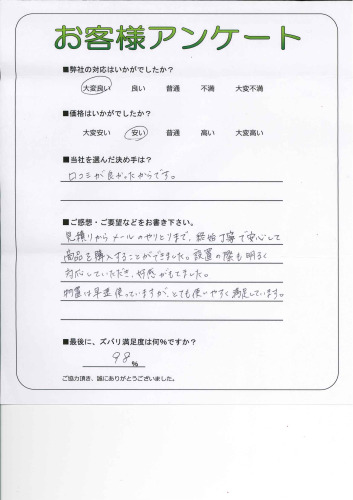 お客様アンケート
■弊社の対応はいかがでしたか？
大変良い 良い 普通 不満 大変不満
■価格はいかがでしたか？
大変安い 安い 普通 高い 大変高い
■当社を選んだ決め手は？
口コミが良かったからです。
■ご感想・ご要望などをお書き下さい。
見積りからメールのやりとりまで、終始丁寧で安心して
商品を購入することができました。設置の際も明るく
対応していただき、好感がもてました。
物置は早速使っていますが、とても使いやすく満足しています。
■最後に、ズバリ満足度は何%ですか？
98 %
ご協力頂き、誠にありがとうございました。